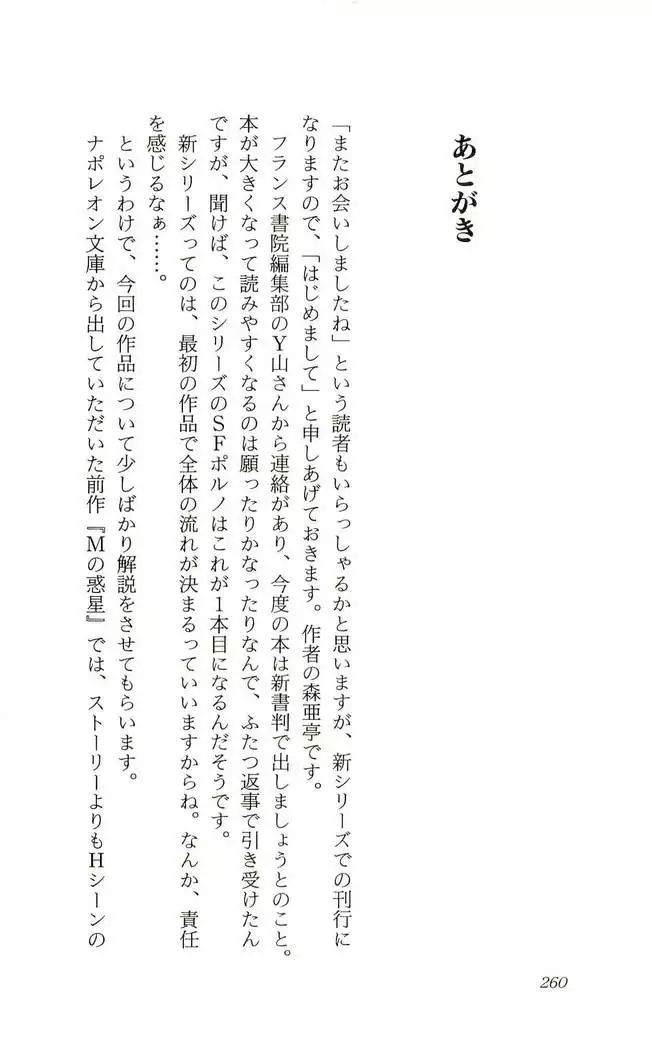 あとがき
「またお会いしましたね」という読者もいらっしゃるかと思いますが、新シリーズでの刊行に
なりますので、「はじめまして」と申しあげておきます。作者の森亜亭です。
フランス書院編集部のY山さんから連絡があり、今度の本は新書判で出しましょうとのこと。
本が大きくなって読みやすくなるのは願ったりかなったりなんで、ふたつ返事で引き受けたん
ですが、聞けば、このシリーズのSFポルノはこれが1本目になるんだそうです。
新シリーズってのは、最初の作品で全体の流れが決まるっていいますからね。なんか、責任
を感じるなぁ……。
というわけで、今回の作品について少しばかり解説をさせてもらいます。
ナポレオン文庫から出していただいた前作『Mの惑星』では、ストーリーよりもHシーンの
260